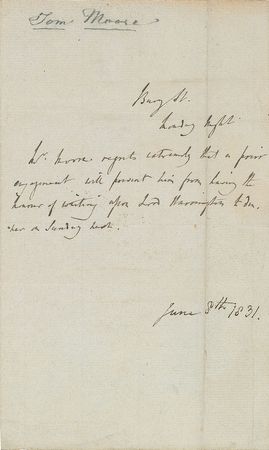 Tom Moore
Bury St.
Monday Night
Mr. Moore regrets extremely that a prior
engagement will prevent him from having the
honour of waiting upon Lord Harrington to din-
ner on Sunday next.
June 8th 1831.